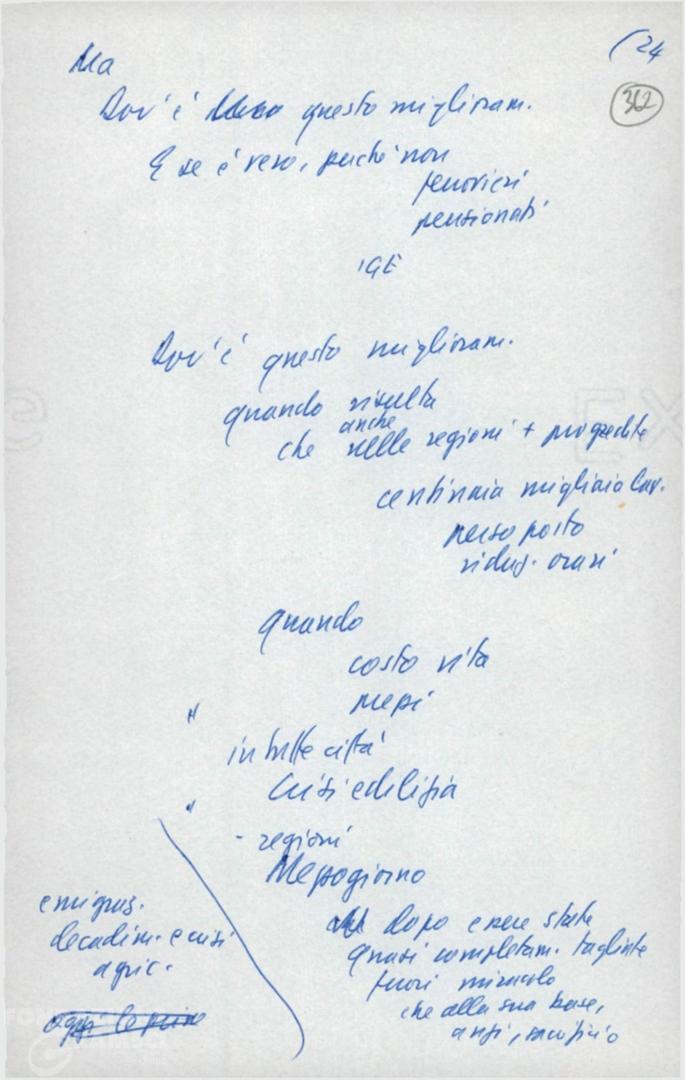 (24
362
Ma
Dov'è questo miglioram.
E se è vero, perché non
ferrovieri
pensionati
IGE
Dov'è questo miglioram.
quando risulta
anche
che nelle regioni + progredite
centinaia migliaia lav.
perso posto
riduz. orari
quando
costo vita
prezzi
"
in tutte città
Crisi edilizia
"
- regioni
Mezzogiorno
emigraz.
decadim. e crisi
agric.
dopo essere state
quasi completam. tagliate
fuori miracolo
che alla sua base,
anzi, sacrificio